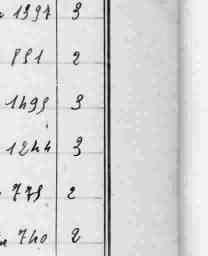 1397 3
851 2
1495 3
1244 3
775 2
740 2